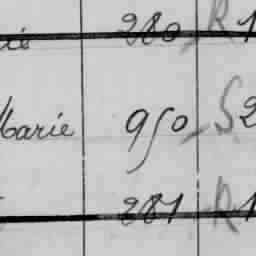 280 R 1
Marie 950 S 2
281 R 1